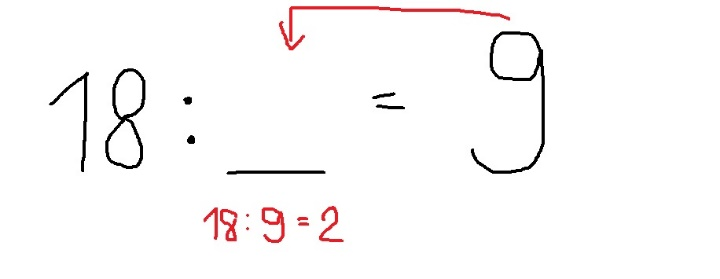 18 : __ = 9
18:9=2